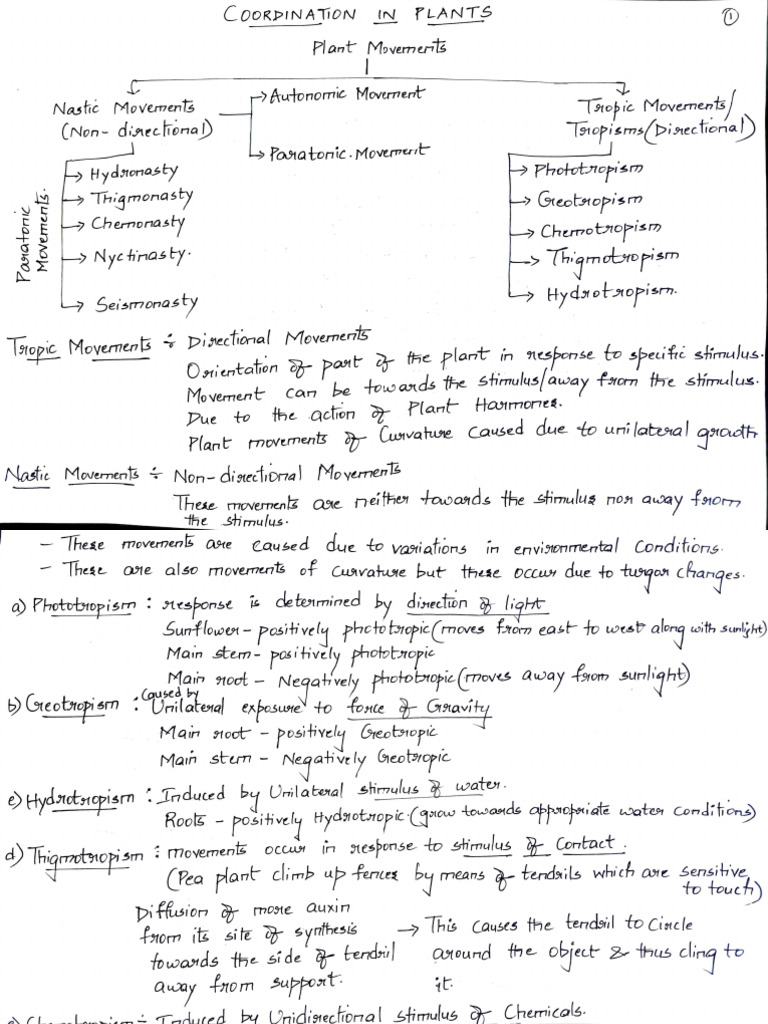 COORDINATION IN PLANTS
1
Plant Movements
Nastic Movements
(Non-directional)
Autonomic Movement
Paratonic Movement
Tropic Movements/
Tropisms (Directional)
Paratonic
Movements.
Hydronasty
Thigmonasty
Chemonasty
Nyctinasty.
Seismonasty
Phototropism
Geotropism
Chemotropism
Thigmotropism
Hydrotropism.
Tropic Movements ÷ Directional Movements
Orientation of part of the plant in response to specific stimulus.
Movement can be towards the stimulus/away from the stimulus.
Due to the action of Plant Harmones.
Plant movements of Curvature caused due to unilateral growth
Nastic Movements ÷ Non-directional Movements
These movements are neither towards the stimulus nor away from
the stimulus.
- These movements are caused due to variations in environmental conditions.
- These are also movements of curvature but these occur due to turgar changes.
a) Phototropism : response is determined by direction of light
Sunflower - positively phototropic (moves from east to west along with sunlight)
Main stem - positively phototropic
Main root - Negatively phototropic (moves away from sunlight)
b) Geotropism : Caused by Unilateral exposure to force of Gravity
Main root - positively Geotropic
Main stem - Negatively Geotropic
c) Hydrotropism : Induced by Unilateral stimulus of water.
Roots - positively Hydrotropic (grow towards appropriate water conditions)
d) Thigmotropism : movements occur in response to stimulus of Contact.
(Pea plant climb up fences by means of tendrils which are sensitive
to touch)
Diffusion of more auxin
from its site of synthesis
towards the side of tendril
away from support.
→ This causes the tendril to Circle
around the object & thus cling to
it.
e) Chemotropism ÷ Induced by Unidirectional stimulus of Chemicals.